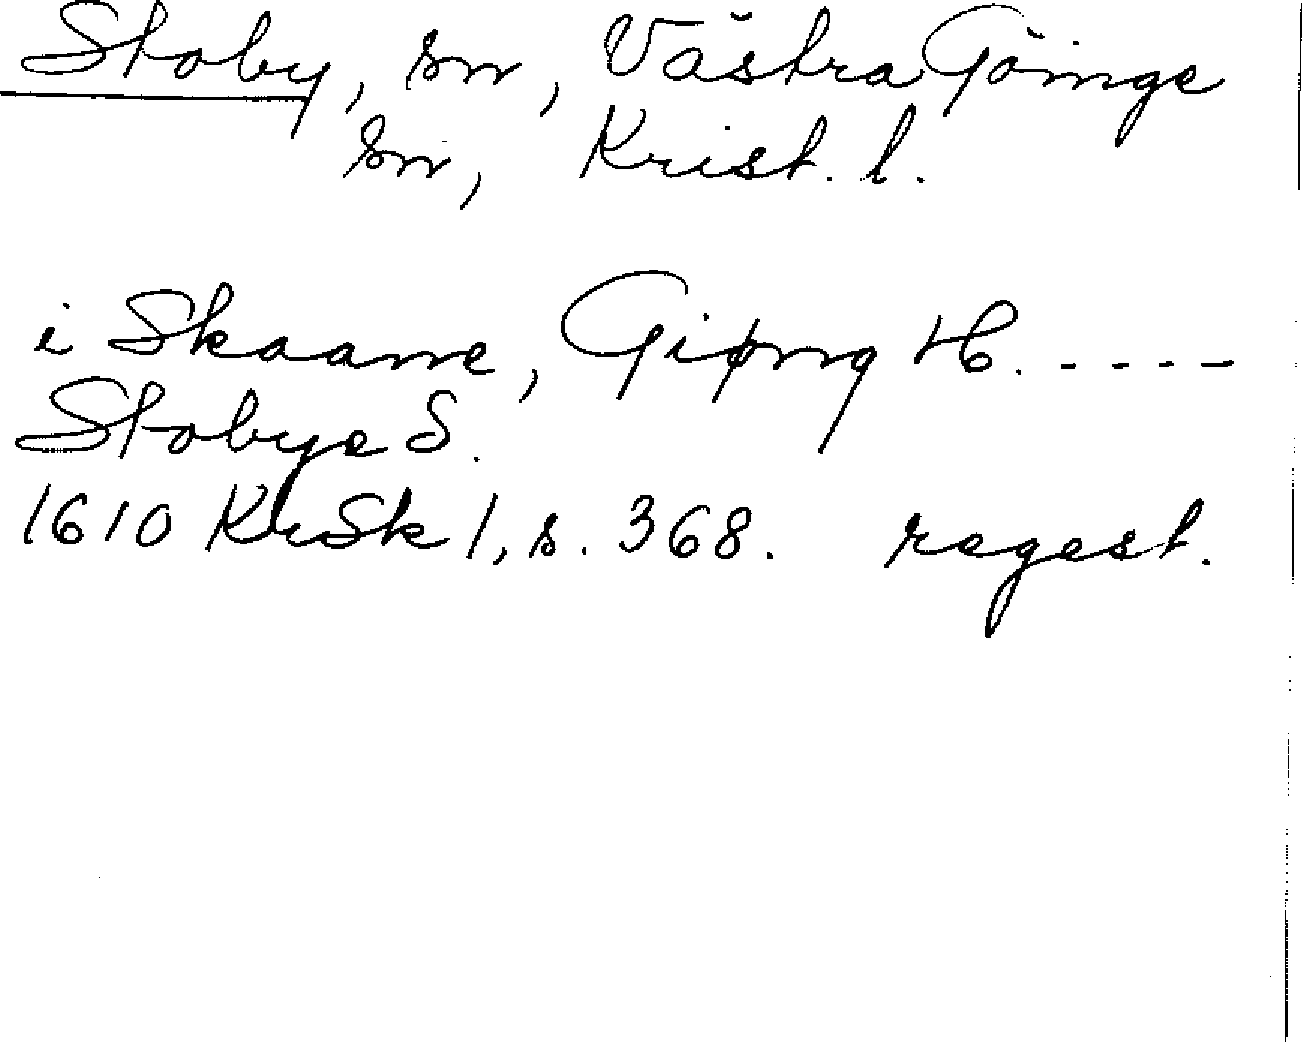 Stoby, sn, Västra Göinge
hd, Krist. l.
i Skaane, Giøng H. - - - - -
Stobye S.
1610 KrSk 1, s. 368. regest.